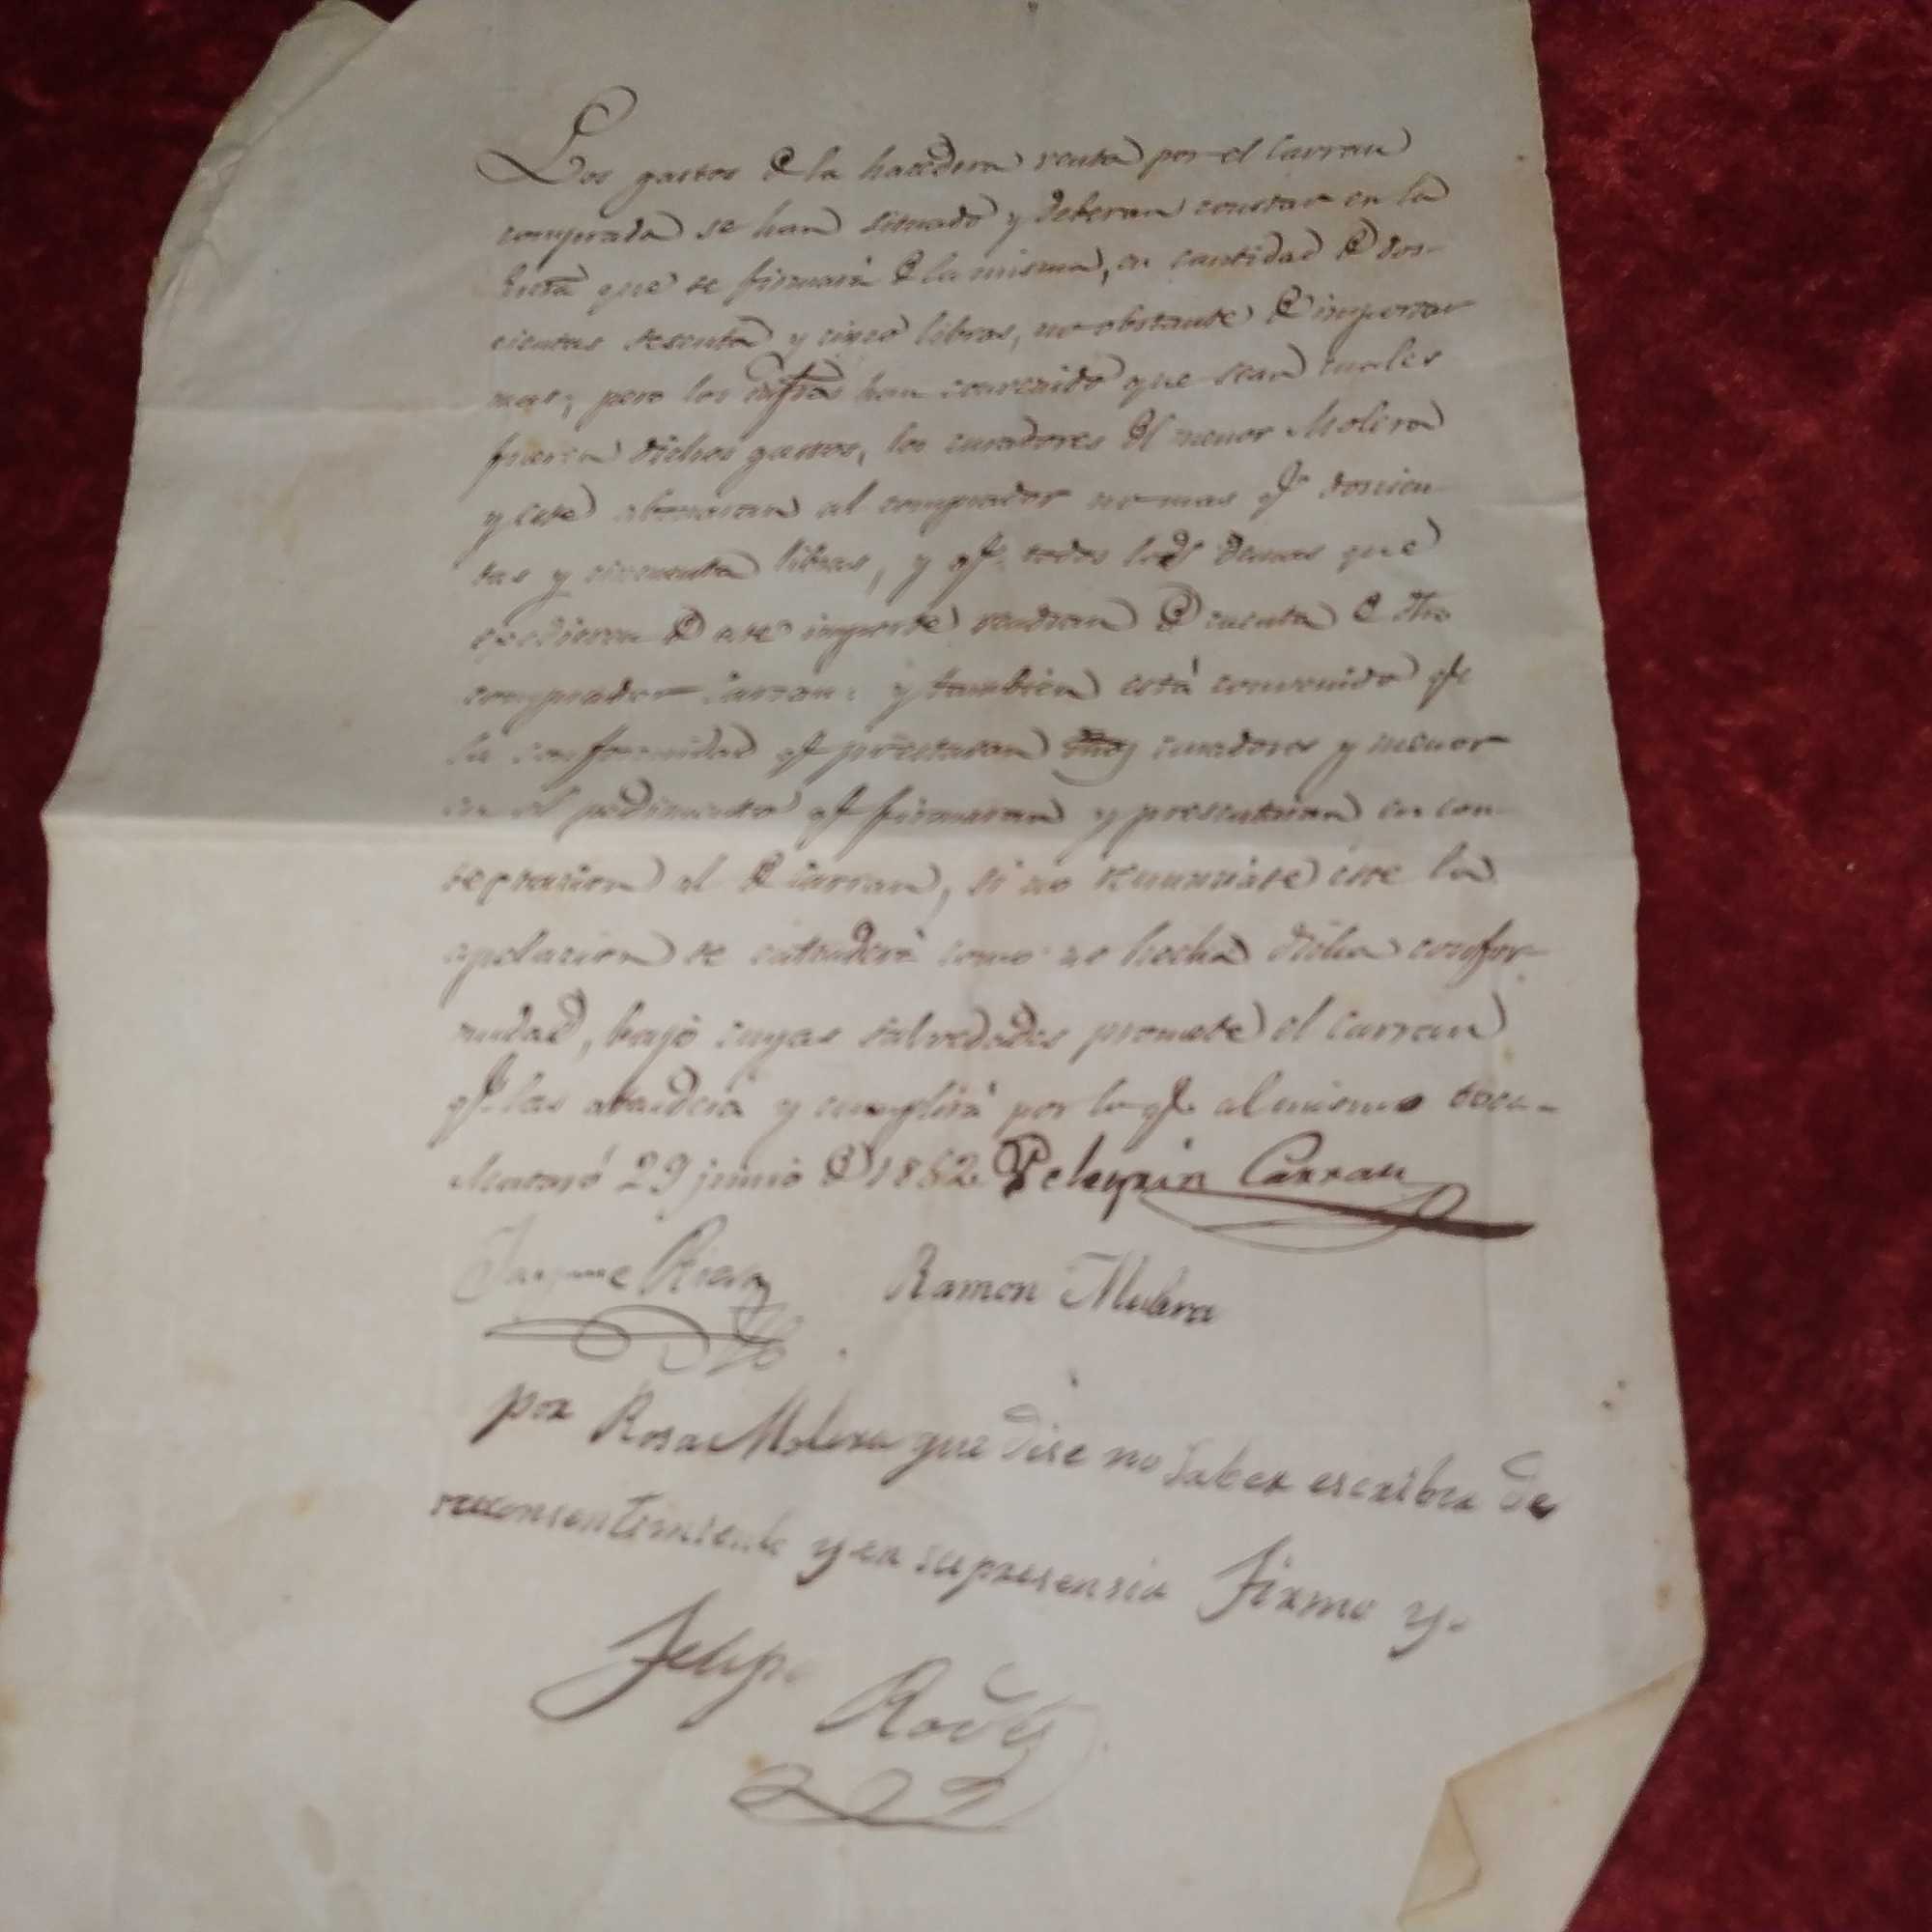 Los gastos de la hacedera venta por el Carrau
comprada se han situado y deberan constar en la
que se firmará de la misma, en cantidad de dos-
cientas sesenta y cinco libras, no obstante de importar
mas, pero los infros han convenido que sean cuales
fueren dichos gastos, los curadores del menor Molera
y este abonaran al comprador no mas qe doscien-
tas y cincuenta libras, y qe todos los demas que
escedieren de este importe vendran de cuenta de dho
comprador Carrau: y tambien está convenido qe
la conformidad qe prestaran curadores y menor
en el pedimento qe firmaran y presentaran en con-
testacion al de Carrau, si no renunciase este la
apelacion se entenderá como no hecha dicha confor-
midad, bajo cuyas salvedades promete el Carrau
qe las atenderá y cumplirá por lo qe al mismo toca-
Mataró 29 junio de 1862 Pelegrin Carrau
Jayme Riera Ramon Molera
por Rosa Molera que dise no saber escribir de
su consentimiento y en su presensia Firmo yo
Felipe Rodes